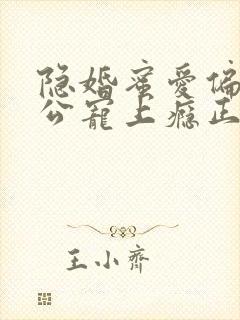 隐婚蜜爱偏
公宠上瘾正
王小齐